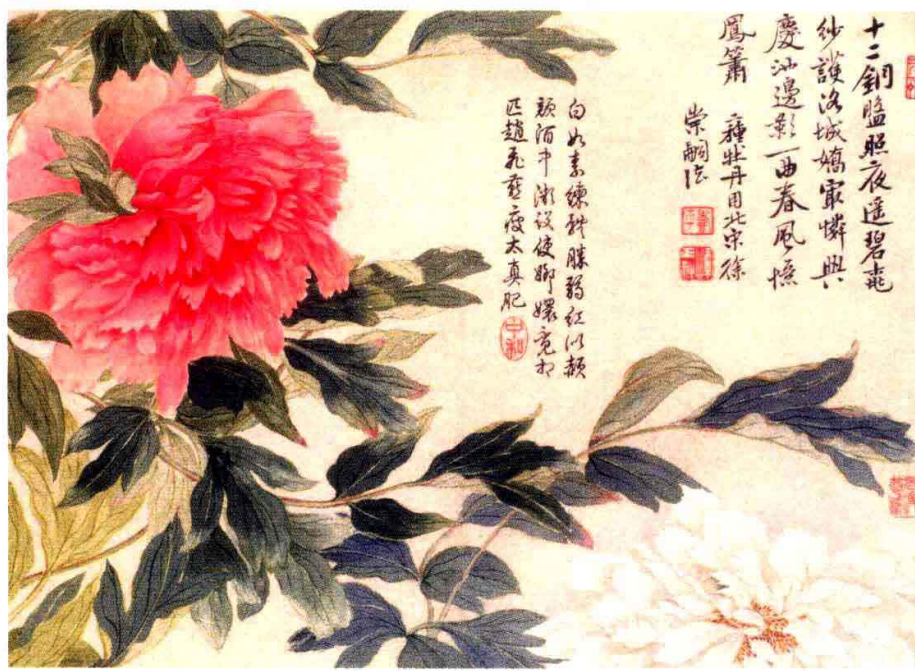 十二銅盤照夜遥碧桃
紗護洛城嬌冣憐興
慶池邊影一曲春風憶
鳳簫 種牡丹用北宋徐
崇嗣法
白如素練 勝弱紅似頳
顏酒半潮設使嫏嬛竟相
匹趙飛燕瘦太真肥